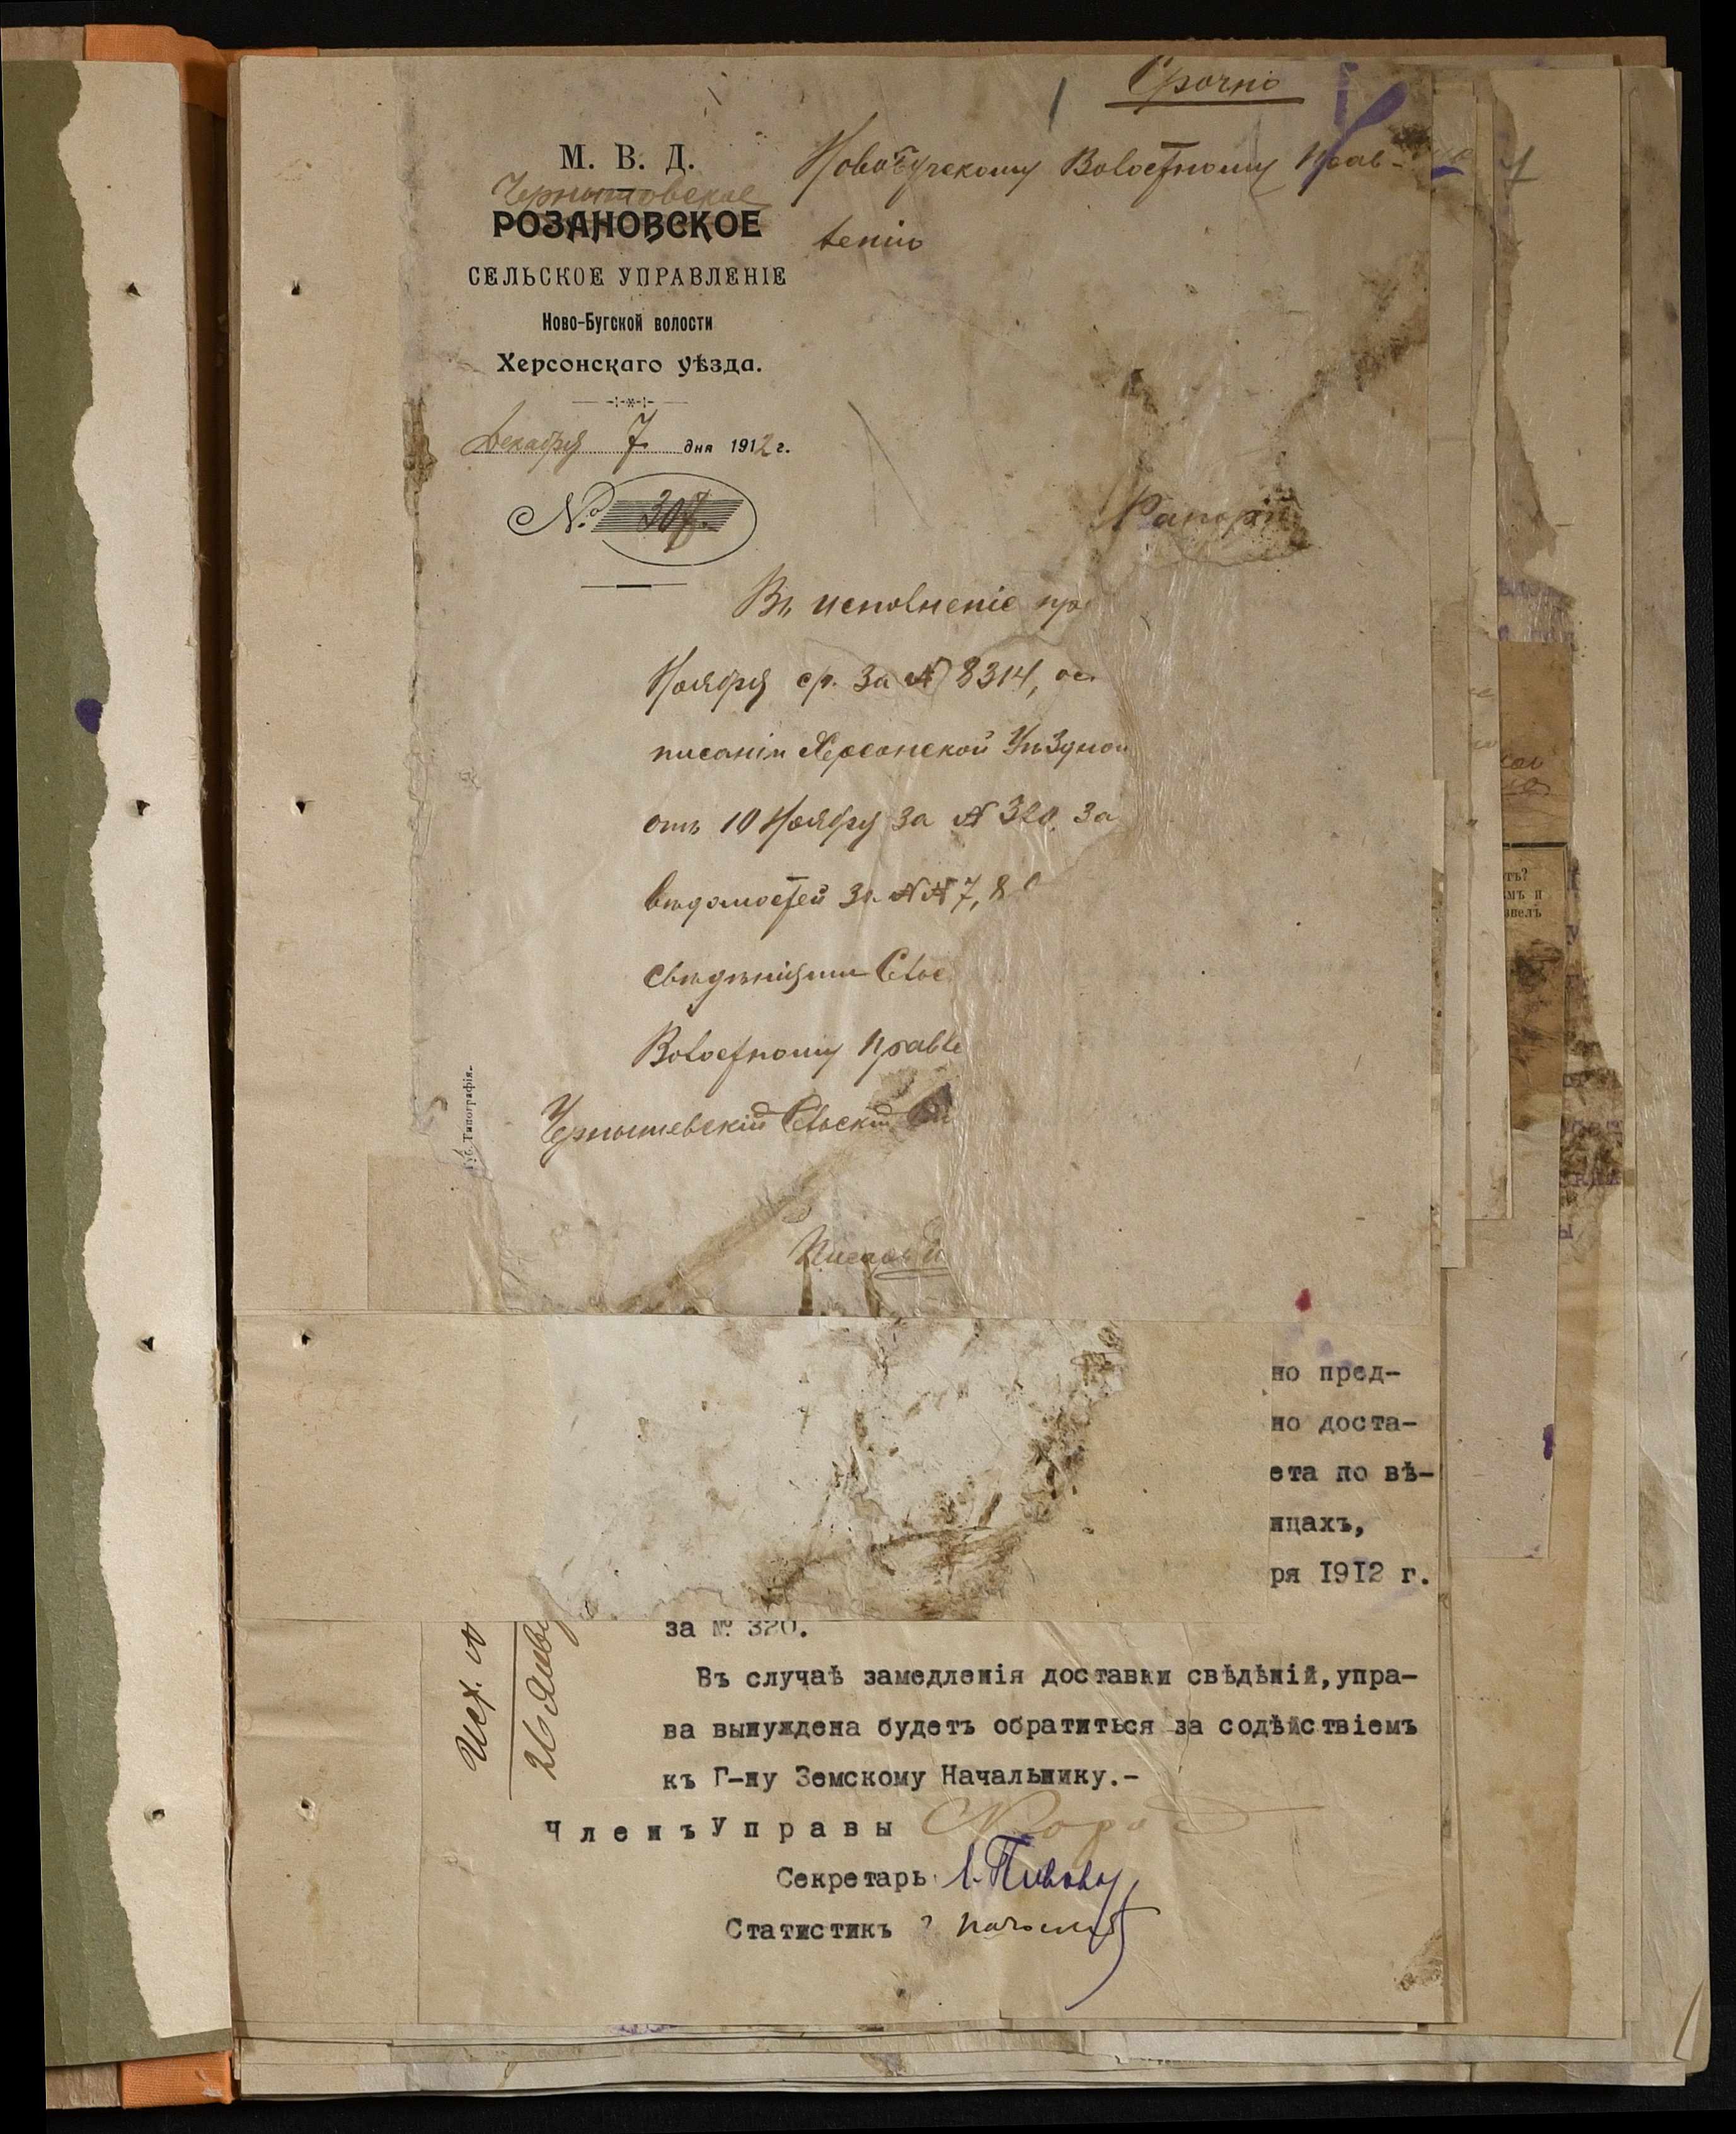 Срочно
М. В. Д.
Чернышевское
РОЗАНОВСКОЕ
СЕЛЬСКОЕ УПРАВЛЕНІЕ
Ново-Бугской волости
Херсонскаго уѣзда.
Декабря 7 дня 1912 г.
№ 307.
Новобугскому Волостному Прав-
ленію
Рапортъ
Въ исполненіе пр
Ноября ср. за № 8314, ос
писанія Херсонской Уѣздной
отъ 10 Ноября за № 320, за
вѣдомостей за №№ 7, 8
свѣдѣніями Сельс
Волостному Правле
Чернышевскій Сельскій
Писарь
Губ. Типографія.
но пред-
но доста-
ета по вѣ-
ицахъ,
ря 1912 г.
за № 320.
Въ случаѣ замедленія доставки свѣдѣній, упра-
ва вынуждена будетъ обратиться за содѣйствіемъ
къ Г-ну Земскому Начальнику.-
Членъ Управы
Секретарь
Статистикъ
Исх. №
26 Янв